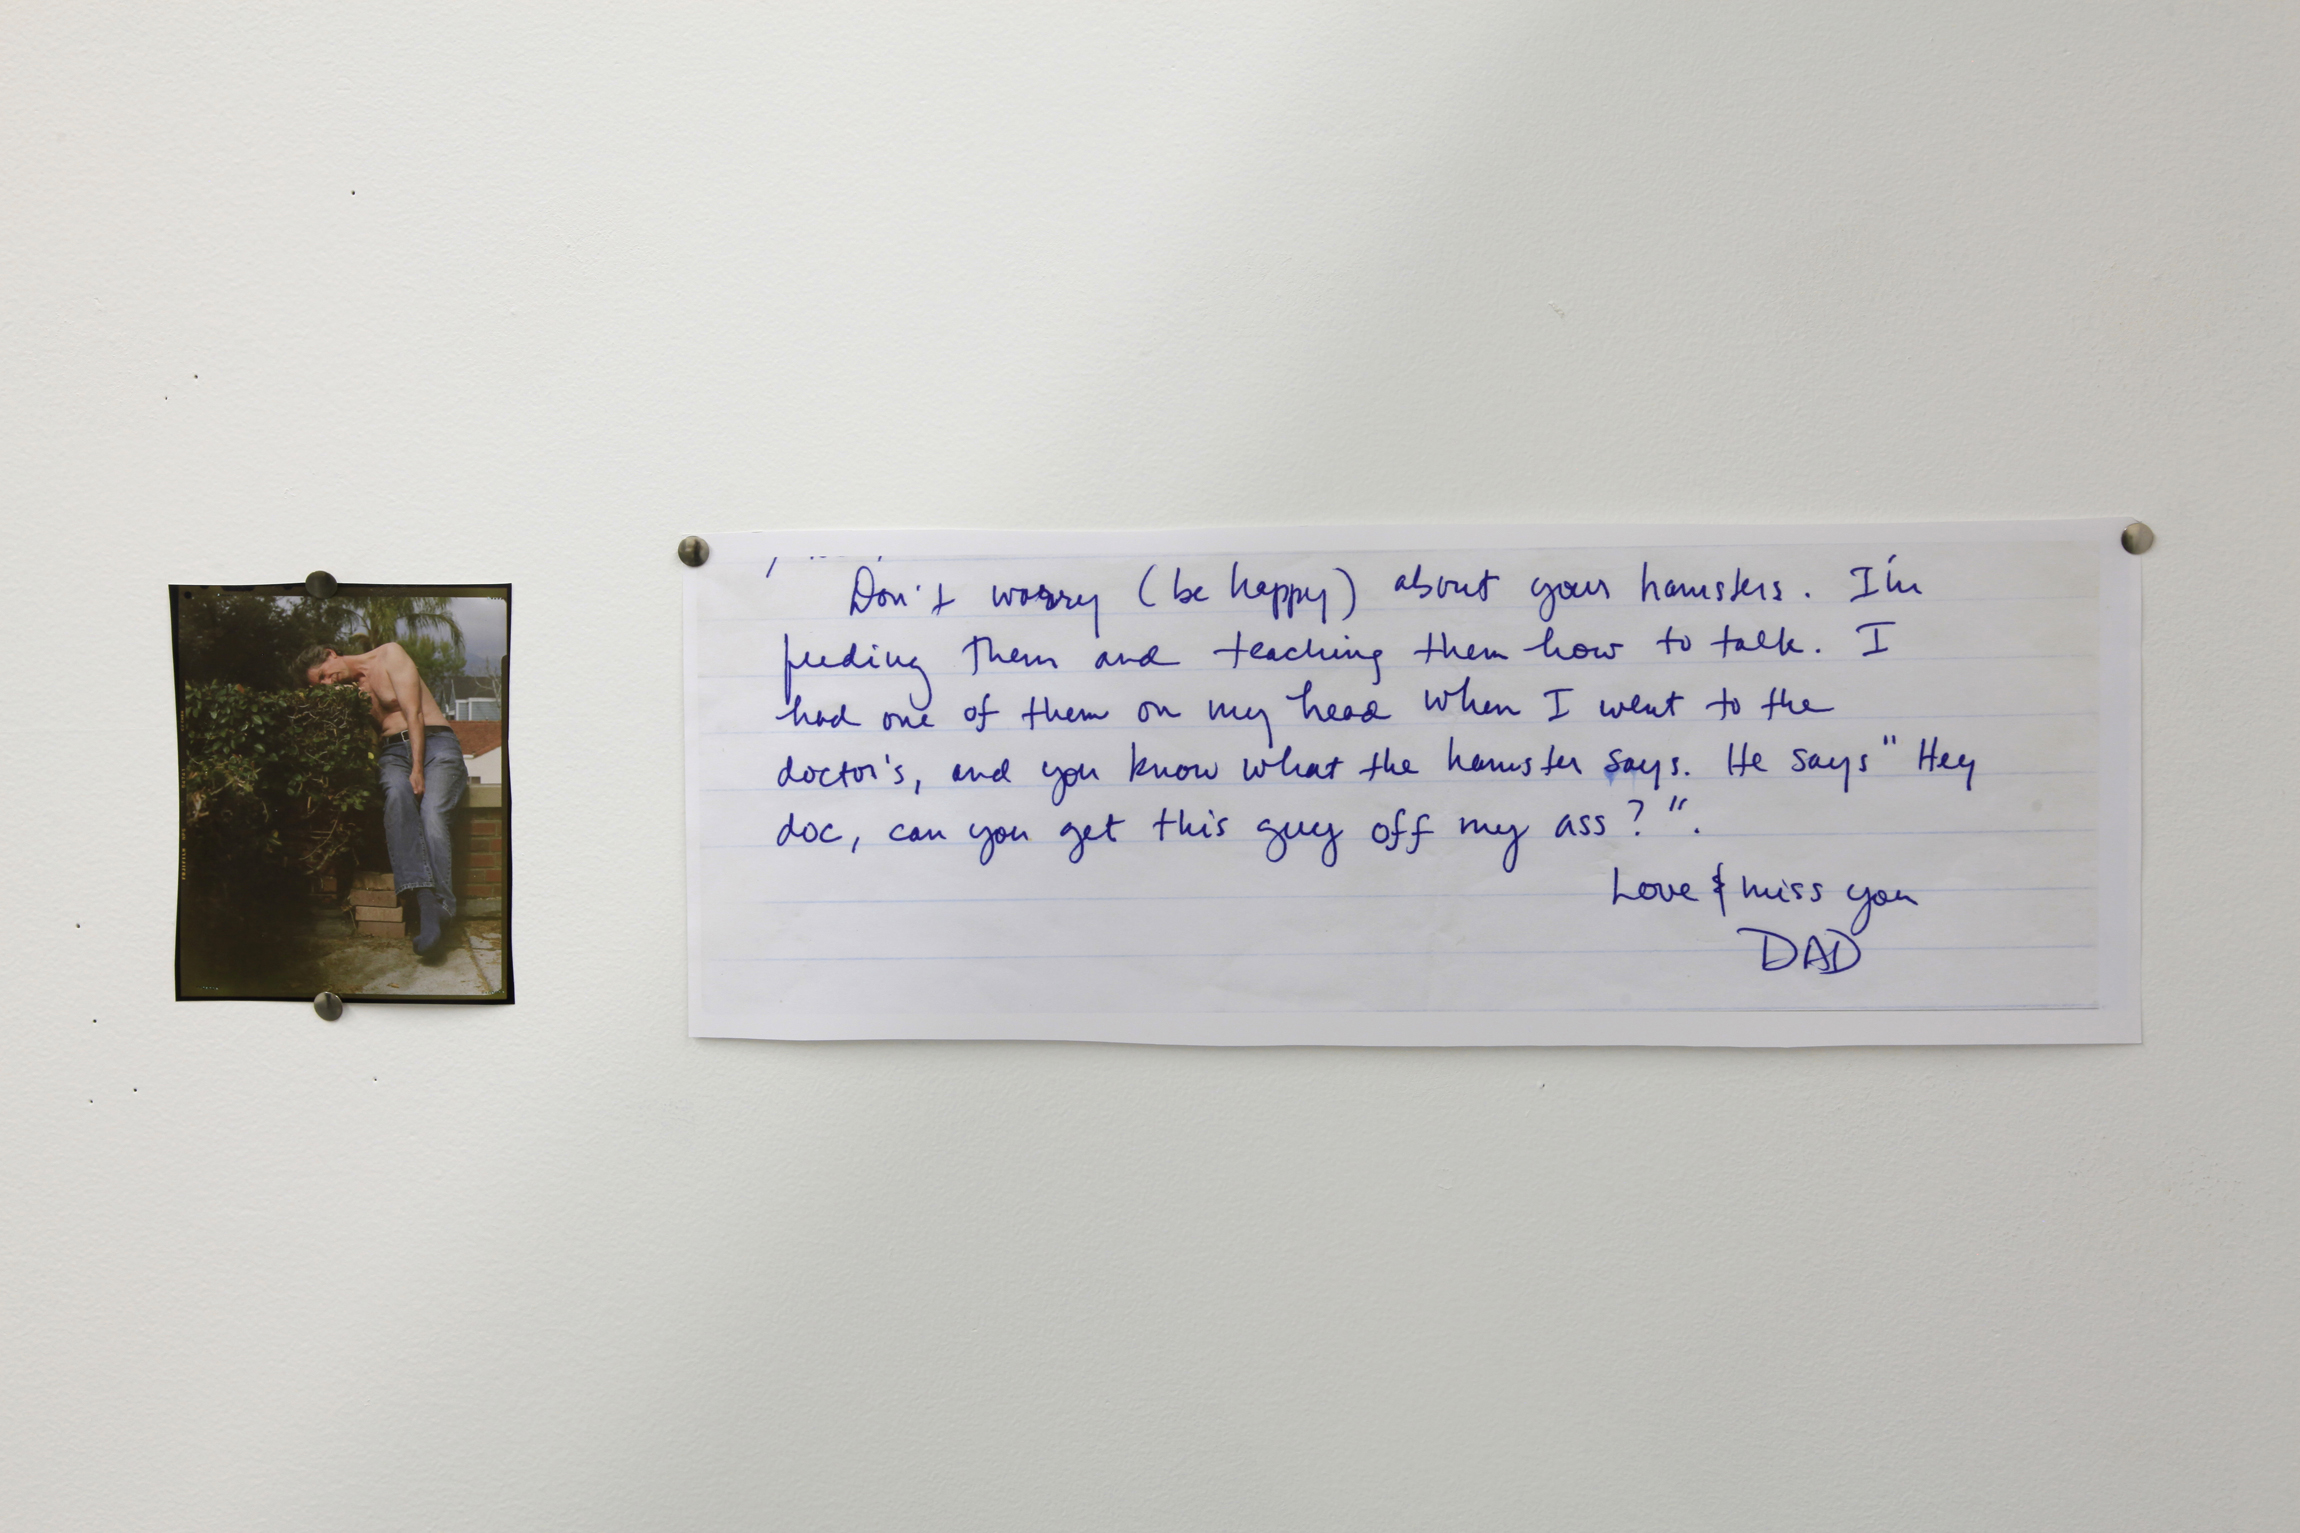 Don't worry (be happy) about your hamsters. I'm
feeding them and teaching them how to talk. I
had one of them on my head when I went to the
doctor's, and you know what the hamster says. He says "Hey
doc, can you get this guy off my ass?".
Love & miss you
DAD